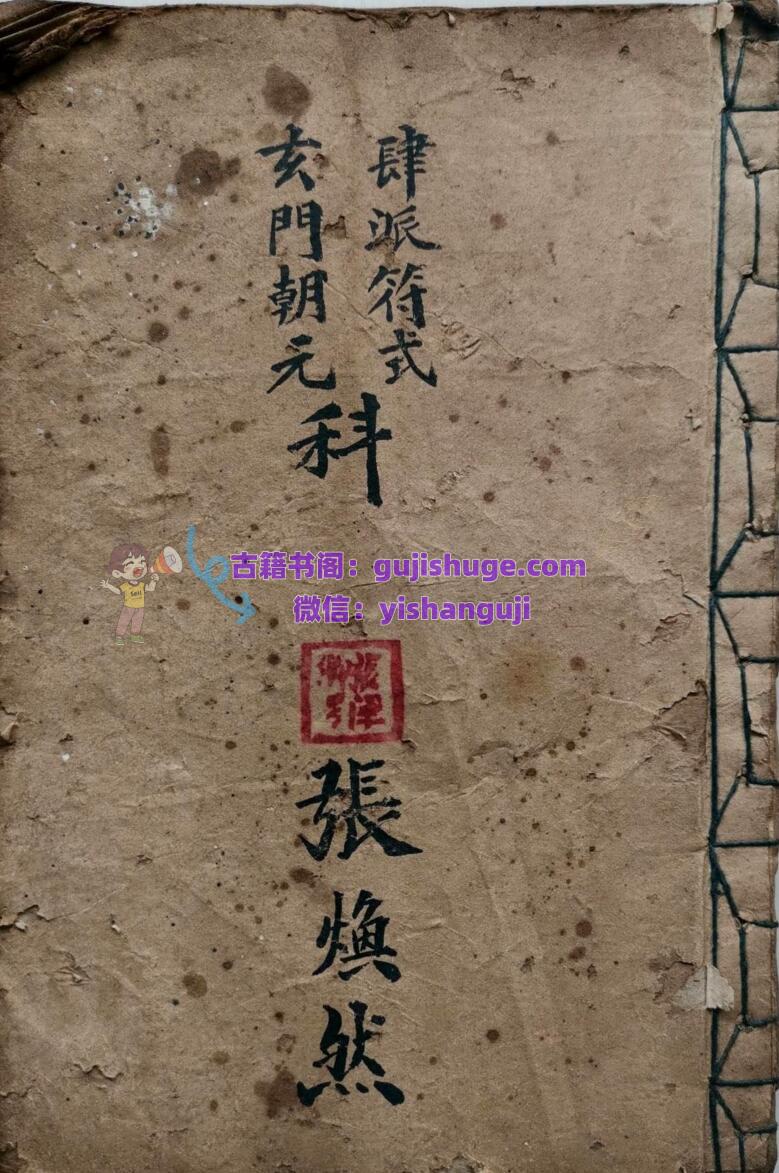 肆派符式
玄門朝元
科
古籍书阁：gujishuge.com
微信：yishanguji
張煥然